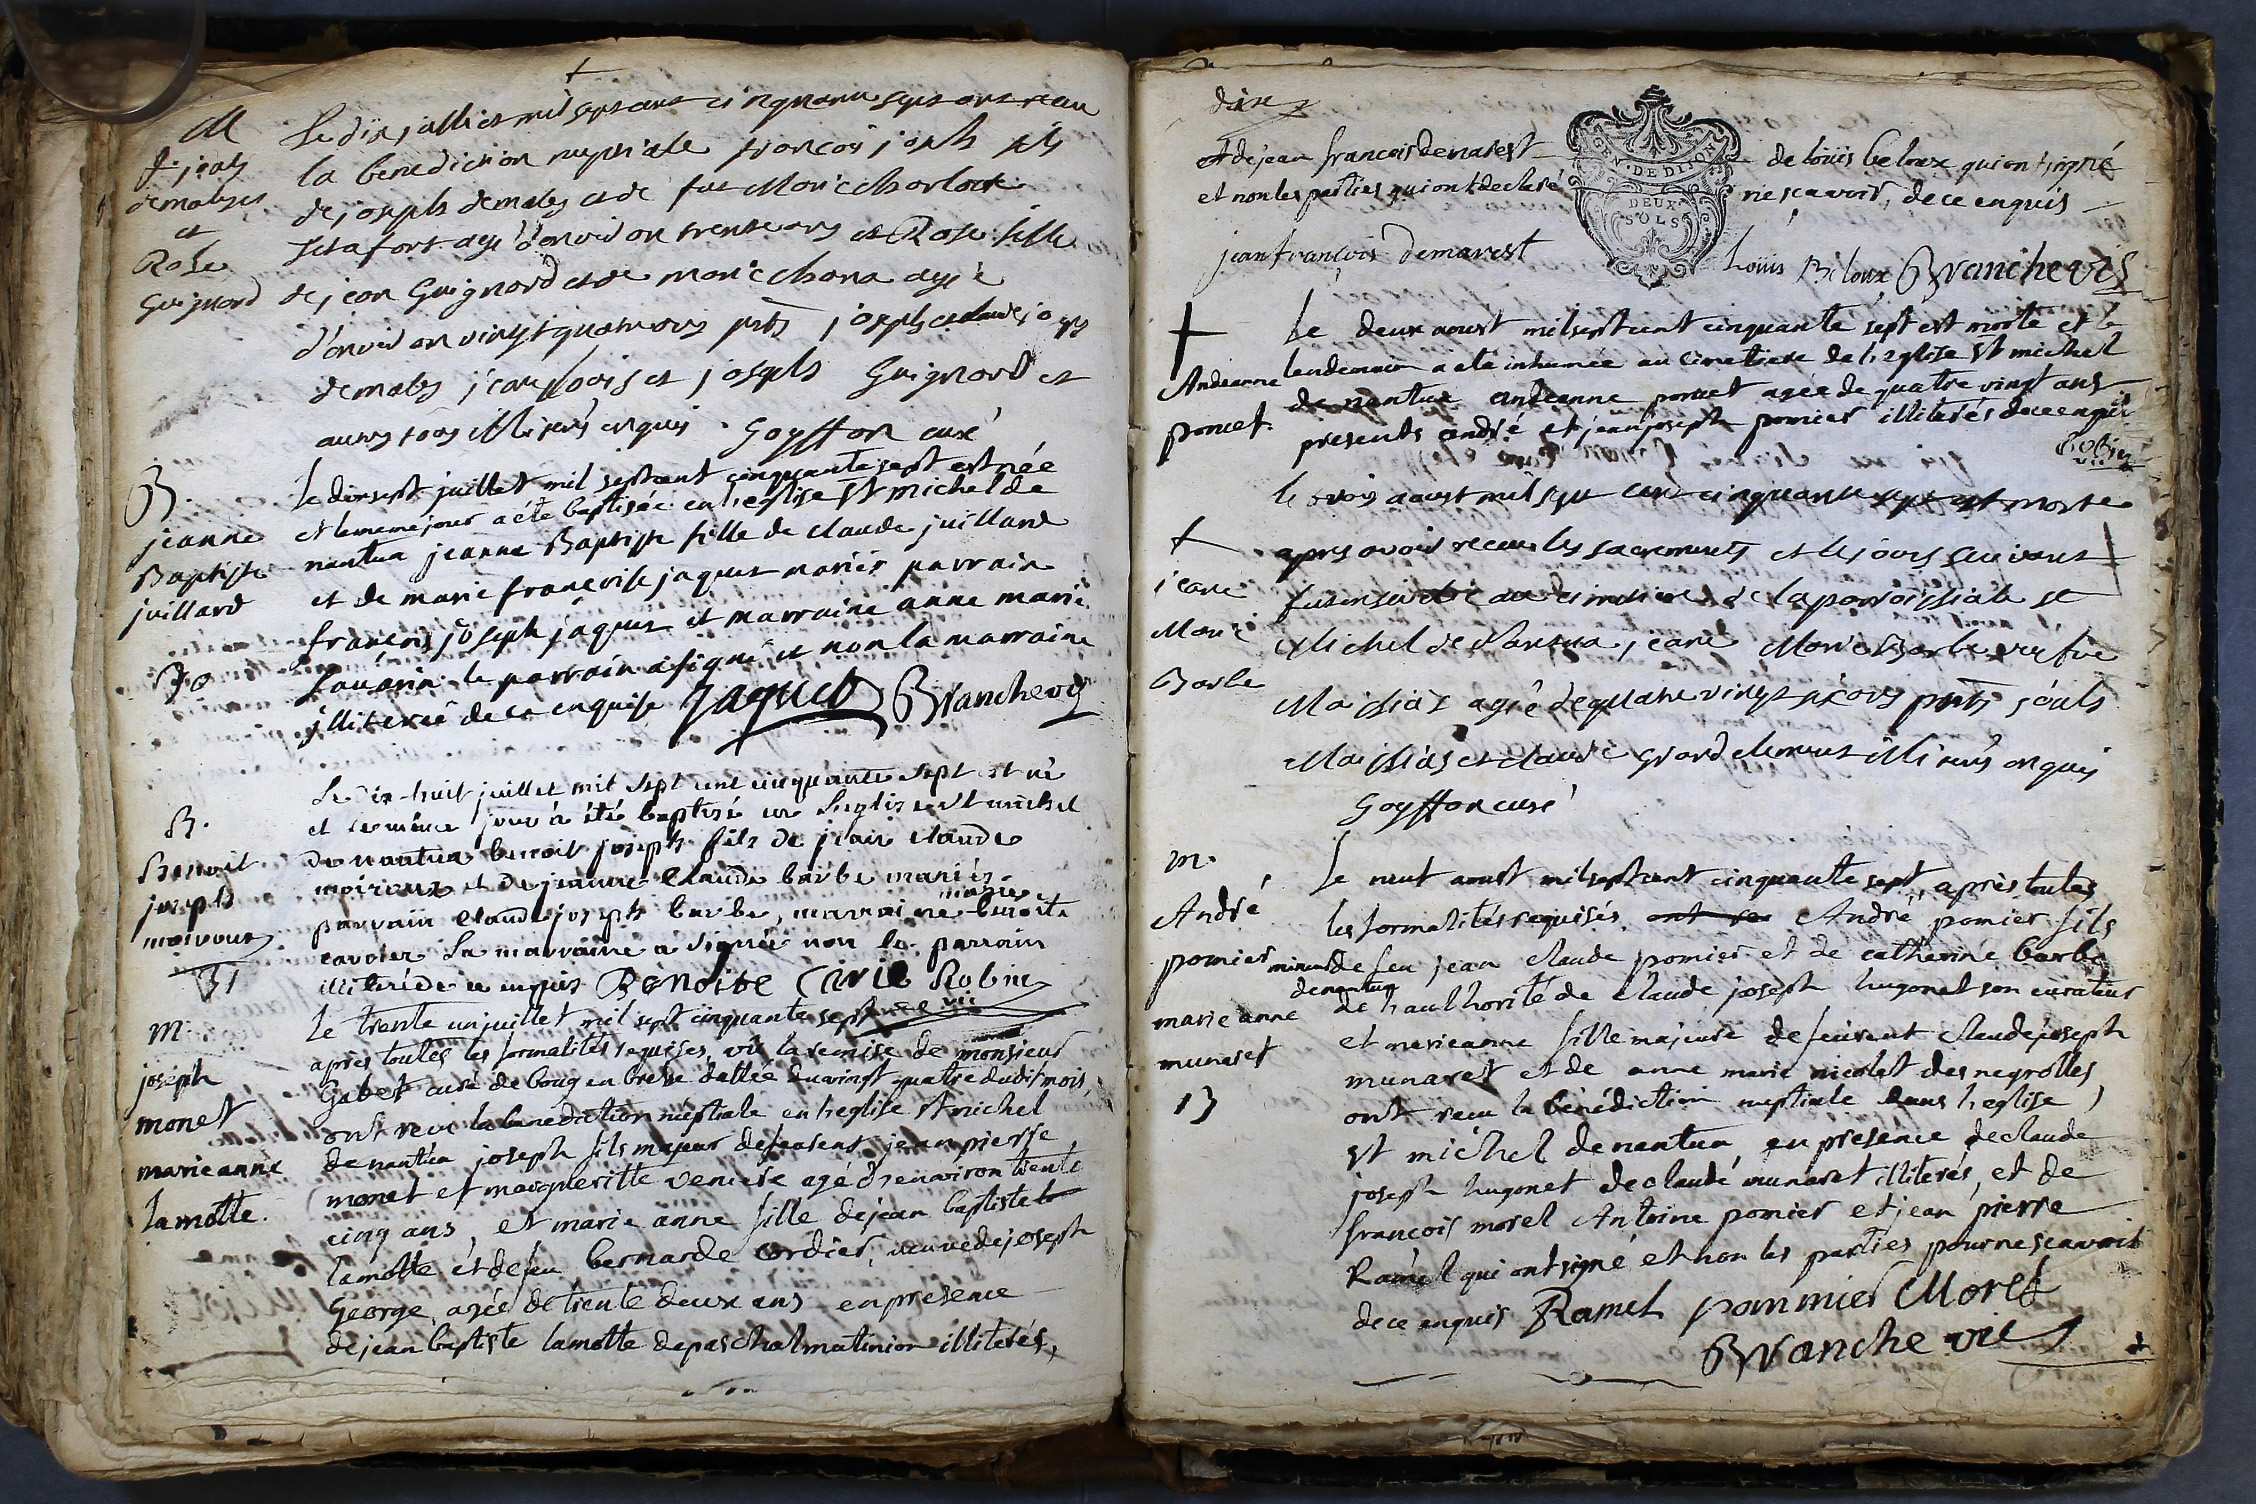 M
f. joseph
demabys
et
Rose
Guignard
Le dix juillet mil sept cent cinquante sept ont reçu
la benediction nuptiale françois joseph fils
de joseph demabys et de fue Marie Charlotte
agé d'environ trente ans et Rose fille
de jean Guignard et de marie agée
d'environ vingt quatre ans pnts joseph claude
demabys jean louis et joseph Guignard et
autres tous illiterés enquis. Goyffon curé
B.
jeanne
Baptiste
juillard
30
Le dix sept juillet mil sept cent cinquante sept est née
et le meme jour a été baptisée en l'eglise St michel de
nantua jeanne Baptiste fille de claude juillard
et de marie françoise jaquet mariés parrain
françois joseph jaquet et marraine anne marie
Sauarin le parrain a signé et non la marraine
illiterée de ce enquise Jaquet Branchevy
B.
Benoit
joseph
moiroux
31
Le dix-huit juillet mil sept cent cinquante sept est né
et le même jour à été baptisé en l'eglise st michel
de nantua benoit joseph fils de jean claude
moiroux et de jeanne claude barbe mariés
parrain claude joseph barbe, marraine marie benoite
cavoier la marraine a signée non le parrain
illiteré de ce enquis Benoite Robin
vic
m.
joseph
monet
marie anne
lamotte.
Le trente un juillet mil sept cinquante sept
après toutes les formalités requises, vû la remise de monsieur
Gabet curé de bourg en bresse dattée du vingt quatre dudit mois,
ont reçu la benediction nuptiale en l'eglise st michel
de nantua joseph fils majeur de jean pierre
monet et margueritte agé d'environ trente
cinq ans, et marie anne fille de jean baptiste
lamotte et de feu bernarde cordier, veuve de joseph
George, agée de trente deux ans en presence
de jean baptiste lamotte de paschal mutinion illiterés,
dix
et de jean francois demarest de loüis beloux qui ont signé
et non les parties qui ont declaré ne sçavoir, de ce enquis
GEN. DE DIJON
DEUX
SOLS
jean françois demarest Loüis Beloux Branche vis
Andeanne
poncet.
Le deux aoust mil sept cent cinquante sept est morte et le
lendemain a eté inhumée au cimetiere de l'eglise st michel
de nantua andeanne poncet agée de quatre vingt ans
presents andré et jean joseph pomier illiterés de ce enquis
Robin
vic
jeane
Marie
Barbe
le trois aoust mil sept cent cinquante sept est morte
apres avoir receu les sacrements et le jour suivant
fut au cimetiere de la paroissiale st
Michel de Nantua, jeane Marie Barbe
Maissiat agée de quatre vingt ans pnts
Maissiat et claude grand clement illiterés enquis
Goyffon curé
m.
André
pomier
marie anne
munaret
13
Le neuf aoust mil sept cent cinquante sept, après toutes
les formalités requises, ont re André pomier fils
mineur de feu jean claude pomier et de catherine barbe
de nantua
de l'authorité de claude joseph hugonet son curateur
et marieanne fille majeure de claude joseph
munaret et de anne marie nicolet des negrolles
ont recu la bénédiction nuptiale dans l'eglise
st michel de nantua, en presence de claude
joseph hugonet de claude munaret illiterés, et de
francois morel Antoine pomier et jean pierre
Ramel qui ont signé et non les parties pour ne sçavoir
de ce enquis Ramel pommier Morel
Branche vic